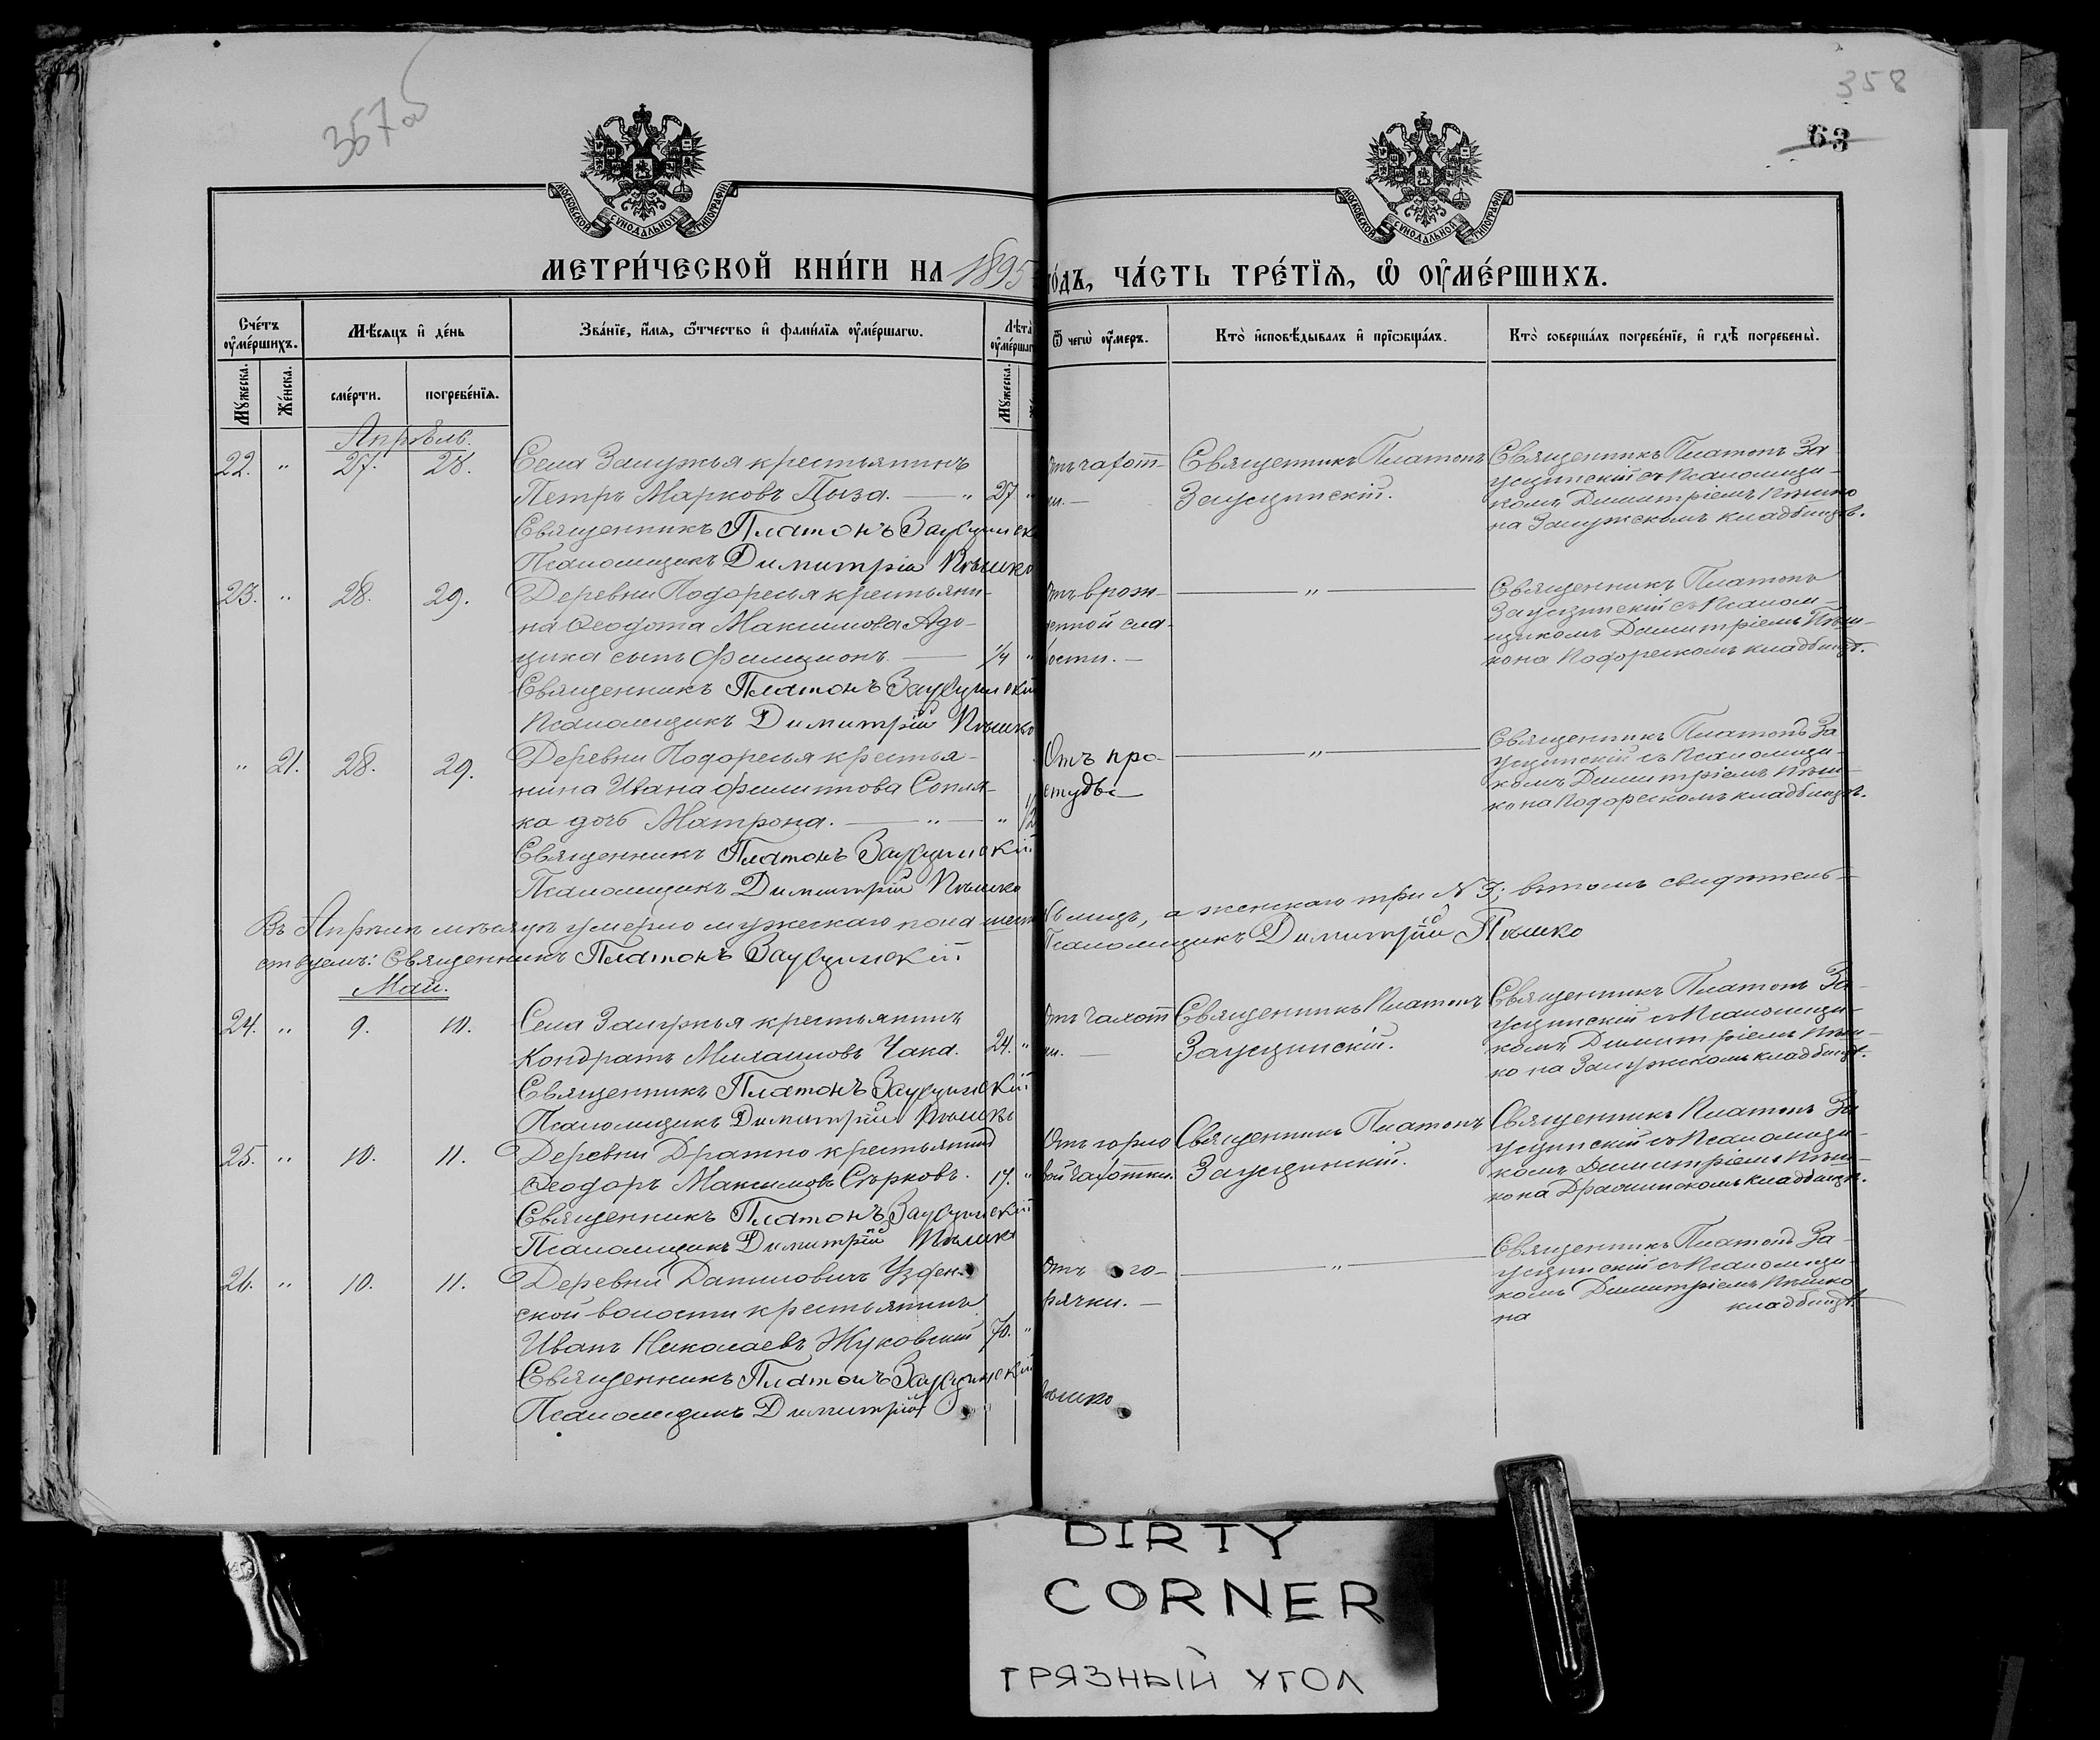 357 об
358
63
МОСКОВСКОЙ СѴНОДАЛЬНОЙ ТИПОГРАФІИ
МОСКОВСКОЙ СѴНОДАЛЬНОЙ ТИПОГРАФІИ
МЕТРИ́ЧЕСКОЙ КНИ́ГИ НА 1895 го́дъ, ЧА́СТЬ ТРЕ́ТІѦ, Ѡ҆ ОУ҆МЕ́РШИХЪ.
Сче́тъ оу҆ме́ршихъ.
Мѣ́сѧцъ и҆ де́нь
Зва́нїе, и҆́мѧ, ѻ҆́тчество и҆ фами́лїѧ оу҆ме́ршагѡ.
Лѣ́та оу҆ме́ршаг
Ѿ чегѡ̀ оу҆́меръ.
Кто̀ и҆сповѣ́дывалъ и҆ прїѡбща́лъ.
Кто̀ соверша́лъ погребе́нїе, и҆ гдѣ̀ погребены̀.
Мꙋ́жеска.
Же́нска.
сме́рти.
погребе́нїѧ.
Мꙋ́жеска.
Апрѣль.
22. " 27. 28. Села Залужья крестьянинъ
Петръ Марковъ Цыза. — " 27 "
Священникъ Платонъ Заусцинск
Псаломщикъ Димитрій Пѣшко
отъ чахот-
ки. —
Священникъ Платонъ
Заусцинскій.
Священникъ Платонъ За
усцинскій съ Псаломщи-
комъ Димитріемъ Пѣшко
на Залужскомъ кладбищѣ.
23. " 28. 29. Деревни Подоресья крестьяни-
на Ѳеодота Максимова Адо-
щика сынъ Филиционъ. — 1/4 "
Священникъ Платонъ Заусцинскій
Псаломщикъ Димитрій Пѣшко
отъ врож-
денной сла-
бости. —
— " —
Священникъ Платонъ
Заусцинскій съ Псалом-
щикомъ Димитріемъ Пѣш-
ко на Подорескомъ кладбищѣ.
" 21. 28. 29. Деревни Подоресья крестья-
нина Ивана Филиппова Сопля-
ка дочь Матрона. — " — " 1/2
Священникъ Платонъ Заусцинскій
Псаломщикъ Димитрій Пѣшко
Отъ про-
студы —
— " —
Священникъ Платонъ За
усцинскій съ Псаломщи-
комъ Димитріемъ Пѣш-
ко на Подорескомъ кладбищѣ.
Въ Апрѣлѣ мѣсяцѣ умерло мужескаго пола шесть лицъ, а женскаго три N 3; въ томъ свидѣтель-
ствуемъ: Священникъ Платонъ Заусцинскій Псаломщикъ Димитрій Пѣшко
Май.
24. " 9. 10. Села Залужья крестьянинъ
Кондратъ Милашовъ Чака. 24. "
Священникъ Платонъ Заусцинскій
Псаломщикъ Димитрій Пѣшко
отъ чахот
ки. —
Священникъ Платонъ
Заусцинскій.
Священникъ Платонъ За-
усцинскій съ Псаломщи-
комъ Димитріемъ Пѣш-
ко на Залужскомъ кладбищѣ.
25. " 10. 11. Деревни Дражно крестьянинъ
Ѳеодоръ Максимовъ Сѣрковъ. 17. "
Священникъ Платонъ Заусцинскій
Псаломщикъ Димитрій Пѣшко
Отъ горло
вой чахотки.
Священникъ Платонъ
Заусцинскій.
Священникъ Платонъ За
усцинскій съ Псаломщи-
комъ Димитріемъ Пѣш-
ко на кладбищѣ.
26. " 10. 11. Деревни Даниловичъ Узден-
ской волости крестьянинъ
Иванъ Николаевъ Жуковскій 70. "
Священникъ Платонъ Заусцинскій
Псаломщикъ Димитрій Пѣшко
Отъ го-
рячки. —
— " —
Священникъ Платонъ За-
усцинскій съ Псаломщи-
комъ Димитріемъ Пѣшко
на кладбищѣ.
DIRTY
CORNER
ГРЯЗНЫЙ УГОЛ